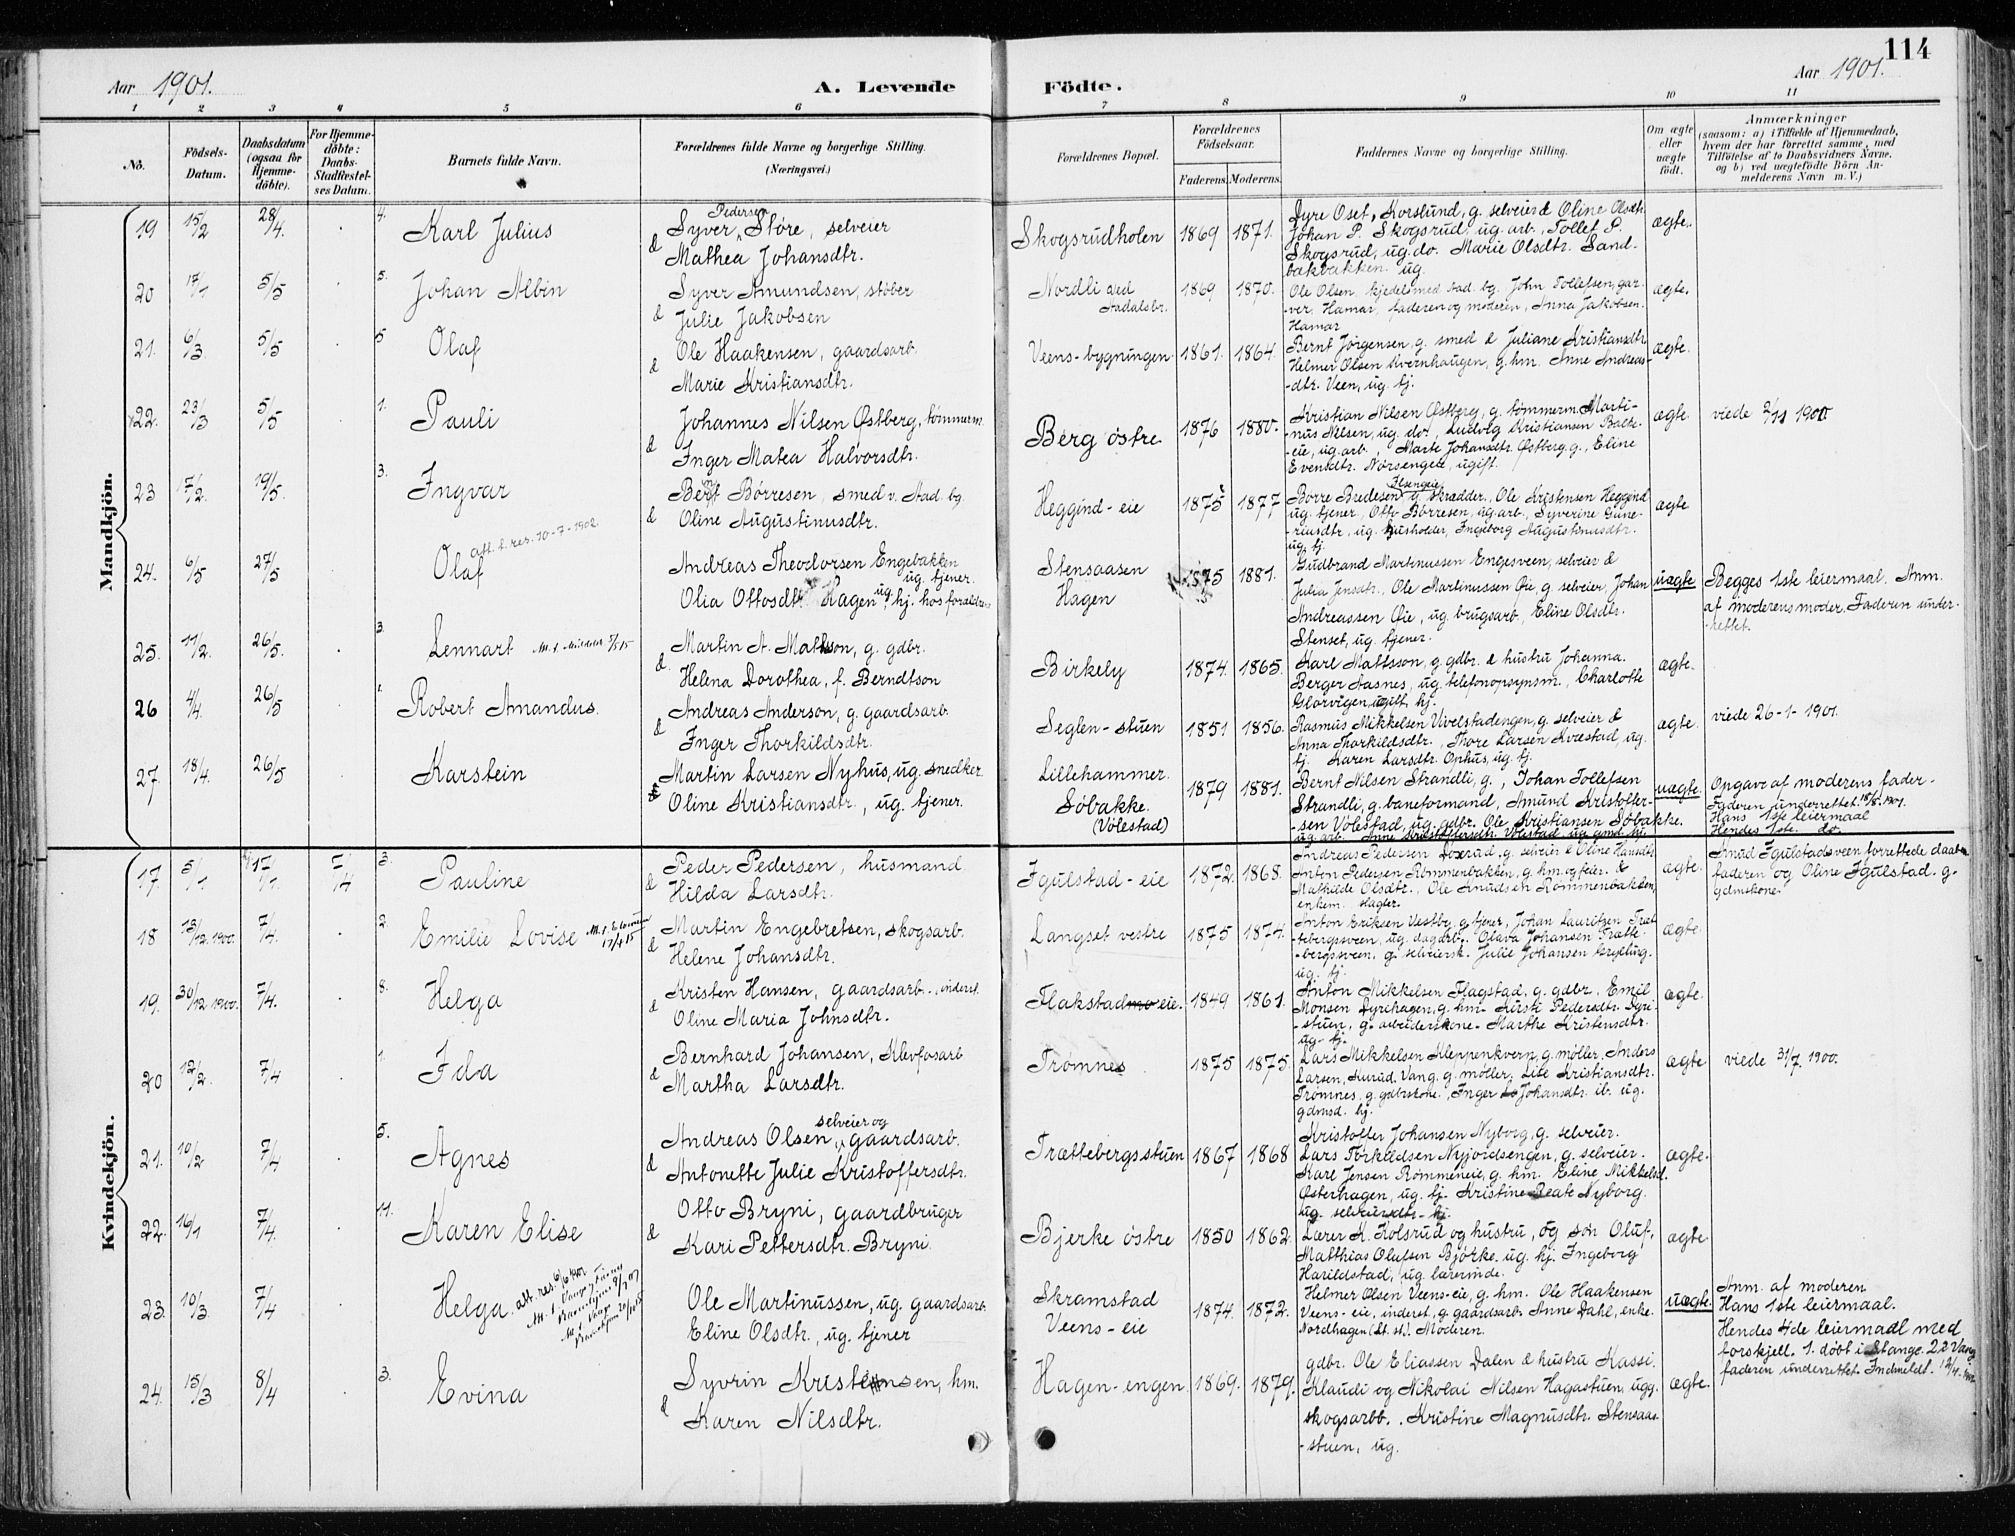 114
Aar 1901.
A. Levende Födte.
Aar 1901.
1 2 3 4 5 6 7 8 9 10 11
No.
Födsels-Datum.
Daabsdatum (ogsaa for Hjemmedöbte).
For Hjemmedöbte: Daabs-Stadfæstelses Datum.
Barnets fulde Navn.
Forældrenes fulde Navne og borgerlige Stilling. (Næringsvei.)
Forældrenes Bopæl.
Forældrenes Födselsaar.
Faderens. Moderens.
Faddernes Navne og borgerlige Stilling.
Om ægte eller uægte födt.
Anmærkninger
(saasom: a) i Tilfælde af Hjemmedaab, hvem der har forrettet samme, med Tilföielse af to Daabsvidners Navne, og b) ved uægtefödte Börn Anmelderens Navn m. V.)
Mandkjön.
19 15/2 28/4. 4. Karl Julius
Syver Pedersen Støre, selveier
& Mathea Johansdtr.
Skogsrudholen 1869 1871.
Dyre Oset, Korslund, g. selveier & Oline Olsdtr.
Johan P. Skogsrud, ug. arb., Tollef P.
Skogsrud, ug. do. Marie Olsdtr. Sand-
bakbakken. ug.
ægte.
20 17/1 5/5 5. Johan Albin
Syver Amundsen, støber
& Julie Jakobsen
Nordli ved Aadalsbr. 1869 1870.
Ole Olsen, kjedelsmed, Aad. bg. John Tollefsen, gar-
-ver, Hamar, faderen og moderen, Anna Jakobsen.
Hamar
ægte.
21. 6/3 5/5 5 Olaf
Ole Haakensen, gaardsarb.
& Marie Kristiansdtr.
Veens-bygningen 1861. 1864.
Bernt Jørgensen, g. smed & Juliane Kristiansdtr
Helmer Olsen Kvernhaugen, g. hm. Anne Andreas-
-dtr. Veen, ug. tj.
ægte.
22. 23/3 5/5 1. Pauli
Johannes Nilsen Østberg, tømmerm.
& Inger Matea Halvorsdtr.
Berg østre 1876 1880.
Kristian Nilsen Østberg, g. tømmerm. Marti-
-nus Nilsen, ug. do., Ludvig Kristiansen Bakke-
-eie, ug. arb., Marte Johansdtr. Østberg g., Eline
Evensdtr. Nørsengen, ugift.
ægte. viede 2/11 1900
23 17/2. 19/5. 3. Ingvar
Bernt Børresen, smed v. Aad. bg.
& Oline Augustinusdtr.
Heggind-eie 1875 1877
Børre Bredesen g. skrædder., Ole Kristensen Heggind
ug. tjener, Otto Børresen, ug. arb., Syverine Gune-
-riusdtr, ug. husholder, Ingeborg Augustinusdtr.
ug. tj.
ægte
24. 6/5 27/5 Olaf att. t. res. 10-7-1902
Andreas Theodorsen Engebakken
ug. tjener.
Olia Ottosdtr. Hagen, ug. hj. hos forældrene
Stensaasen
Hagen 1875 1881.
Gudbrand Martinussen Engesveen, selveier &
Julia Jensdtr., Ole Martinussen Øie, g. selveier, Johan
Andreassen Øie, ug. brugsarb, Eline Olsdtr.
Stenset, ug. tjener.
uægte
Begges 1ste leiermaal. Anm.
af moderens moder. Faderen under-
-rettet.
25. 11/2. 26/5. 3. Lennart
Martin A. Mattson, g. gdbr.
& Helena Dorothea, f. Berndtson
Birkely 1874. 1865.
Karl Mattsson, g. gdbr. & hustru Johanna.
Berger Aasnes, ug. telefonopsynsm., Charlotte
Glorvigen, ugift, hj.
ægte.
26 4/4. 26/5 1. Robert Amandus.
Andreas Anderson, g. gaardsarb.
& Inger Thorkildsdtr.
Seglen-stuen 1851 1856.
Rasmus Mikkelsen Uvelstadengen, g. selveier &
Anna Thorkildsdtr., Thore Larsen Kvæstad, ug.
tj. Karen Larsdtr. Ophus, ug. tj.
ægte. viede 26-1-1901.
27. 18/4. 26/5 Karstein
Martin Larsen Nyhus, ug. snedker.
Oline Kristiansdtr., ug. tjener.
Lillehammer.
Søbakke. (Volestad) 1879 1881.
Bernt Nilsen Strandli, g., Johan Tollefsen
Strandli, g. baneformand, Amund Kristoffer-
-sen Volestad, ug. gdbr. Ole Kristiansen Søbakke.
ug. arb. Anne Kristoffersdtr. Volestad ug.
uægte.
Opgave af moderens fader.
Faderen underrettet. 18/5. 1901.
Hans 1ste leiermaal
Hendes 1ste. do.
Kvindekjön.
17 5/1 17/1. 7/4 3. Pauline
Peder Pedersen, husmand
& Hilda Larsdtr.
Fgulstad-eie 1872. 1868.
Andreas Pedersen Loxrud, g. selveier & Oline Hansdtr
Anton Pedersen Rømmenbakken, g. hm. og feier. &
Mathilde Olsdtr., Ole Knudsen Rømmenbakken,
enkem. slagter.
ægte.
Knud Fgulstadsveen forrettede daab.
faderen og Oline Fgulstad. g.
gdmskone.
18 13/12 1900. 7/4. 2. Emilie Lovise
Martin Engebretsen, skogsarb.
& Helene Johansdtr.
Langset vestre 1875 1874.
Anton Eriksen Vestby g. tjener, Johan Lauritzen Træt-
-tebergsveen, ug. dagarb. Olava Johansen Trætte-
-bergssveen, g. selveiersk. Julie Johansen Grylling.
ug. tj.
ægte.
19. 30/12 1900. 7/4. 8. Helga
Kristen Hansen, gaardsarb. inderst.
& Oline Maria Johnsdtr.
Flakstad eie. 1849 1861.
Anton Mikkelsen Flagstad, g. gdbr. Emil
Monsen Dyrihagen, g. hm. Kristi Pedersdtr. Dyri-
-stuen, g. arbeiderskone. Marthe Kristensdtr.
ug. tj.
ægte.
20 12/2. 7/4 1. Ida
Bernhard Johansen, Klevfosarb
& Martha Larsdtr.
Trømnes 1875 1875.
Lars Mikkelsen Kleppenkvern, g. møller, Anders
Larsen, Kurud. Vang. g. møller. Lise Kristiansdtr.
Trømnes, g. gdbrskone., Inger Johansdtr. ib. ug.
gdmsd. hj.
ægte viede 31/7. 1900.
21. 10/2 7/4 5. Agnes
Andreas Olsen, selveier og gaardsarb.
& Antonette Julie Kristoffersdtr.
Trættebergsstuen 1867 1868
Kristoffer Johansen Nyborg, g. selveier.
Lars Torkildsen Nyjordsengen, g. selveier.
Karl Jensen Rømmeneie, g. hm. Eline Mikkelsd.
Østerhagen, ug. tj. Kristine Beate Nyborg.
ug. selveierdtr. hj.
ægte.
22. 16/1 7/4. 11. Karen Elise
Otto Bryni, gaardbruger
& Kari Pettersdtr. Bryni.
Bjerke østre 1850 1862.
Lærer K. Kolsrud og hustru, og søn Oluf,
Matthias Olufsen Bjørke. ug. hj. Ingeborg
Harildstad, ug. lærerinde.
ægte
23. 10/3 7/4 Helga att. res.
Ole Martinussen, ug. gaardsarb.
Eline Olsdtr., ug. tjener
Skramstad
Veens-eie 1874. 1872.
Helmer Olsen Veens-eie, g. hm. Ole Haakensen
Veens-eie, inderst, g. gaardsarb. Anne Dahl, enke.
Nordhagen (Lt. st.). Moderen.
uægte.
Anm. af moderen
Hans 1ste leiermaal.
Hendes 4de leiermaal med
forskjell. 1. døbt i Stange. 2 i Vang
faderen underrettet. Indmeldt.
24. 15/3 8/4 3. Evina
Syvrin Kristensen, hm.
& Karen Nilsdtr.
Hagen-engen 1869. 1879.
gdbr. Ole Eliassen Dalen & hustru Kassi.
Klaudi og Nikolai Nilsen Hagastuen, ugg.
skogsarbb. Kristine Magnusdtr. Stensaas-
-stuen, ug.
ægte.